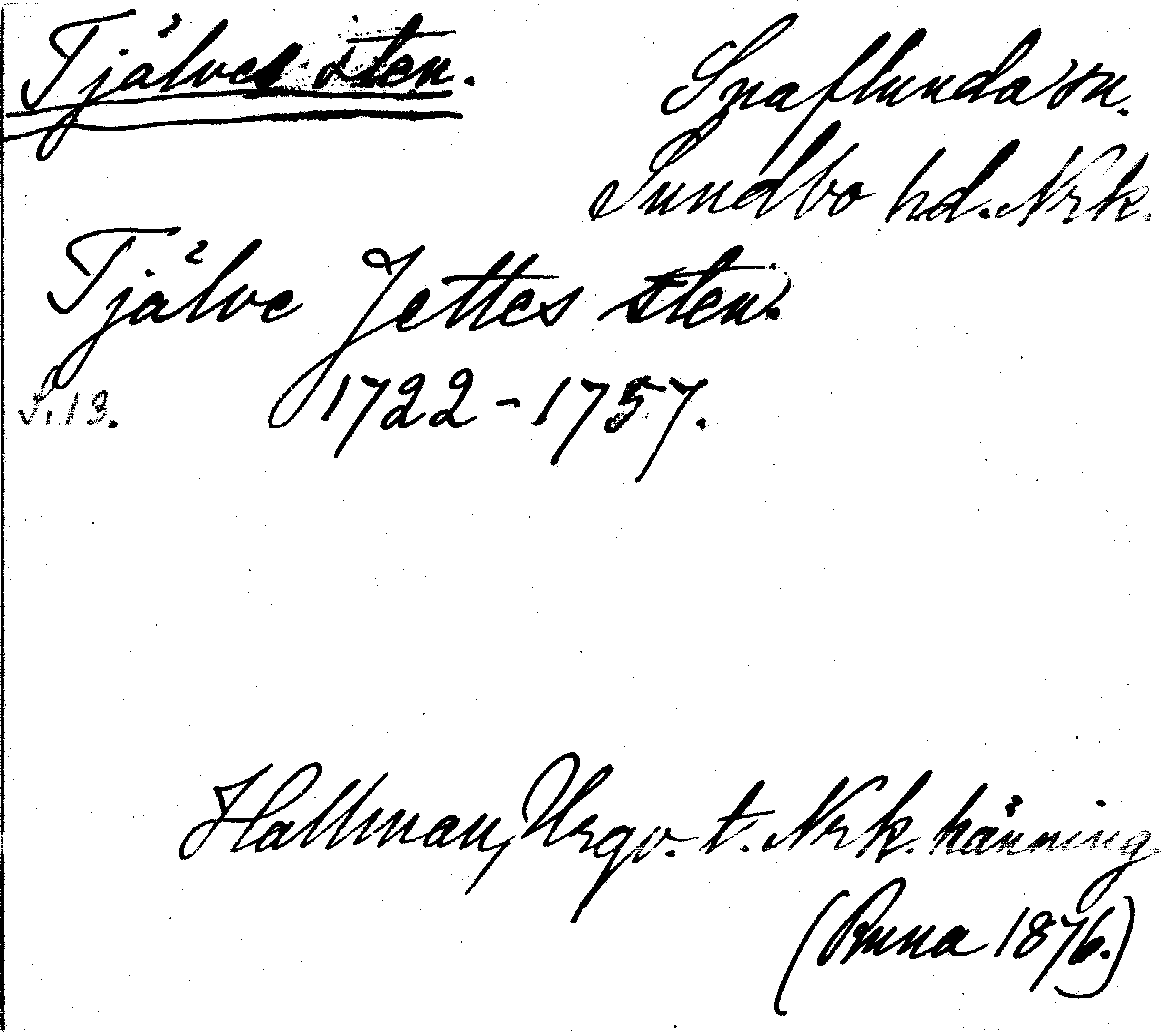 Tjälves sten.
Snaflunda sn.
Sundbo hd. Nrk.
Tjälve Jettes sten.
S. 13. 1722-1757.
Hallman, Urgv. t. Nrk. känning
(Runa 1876.)